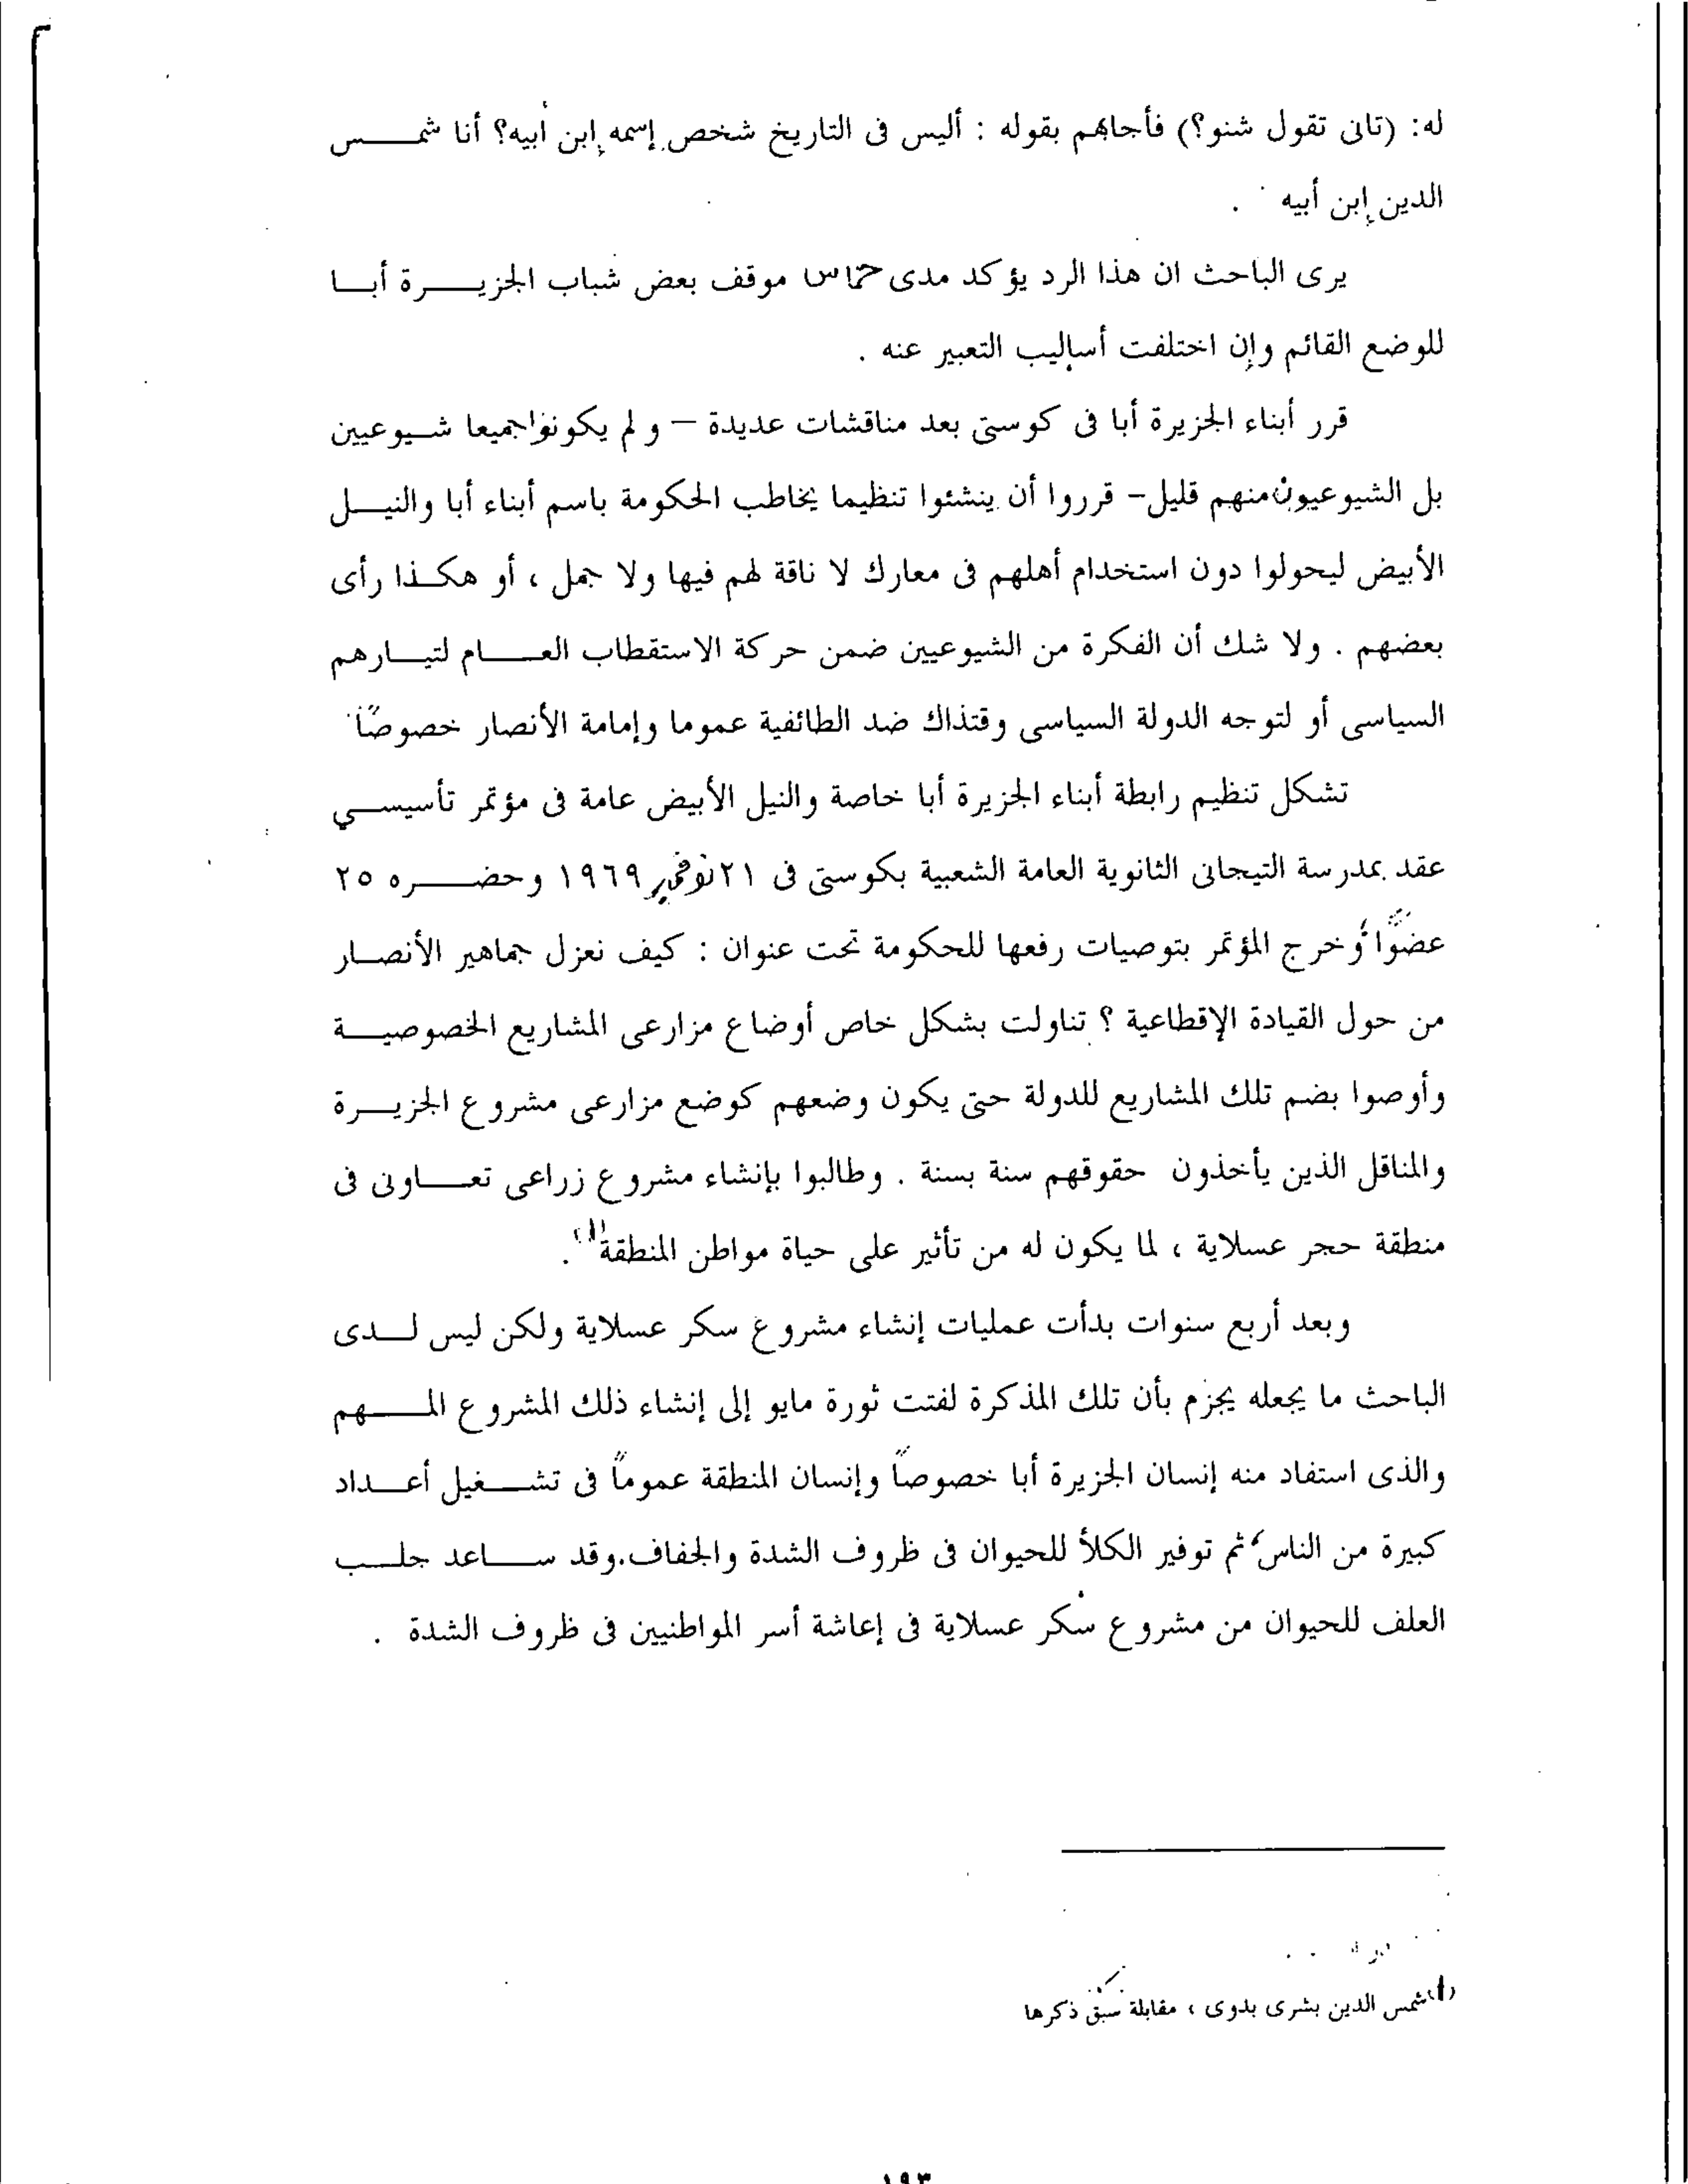 له: (تانى تقول شنو؟) فأجابهم بقوله : أليس فى التاريخ شخص إسمه إبن أبيه؟ أنا شمس
الدين إبن أبيه .
يرى الباحث ان هذا الرد يؤكد مدى حماس موقف بعض شباب الجزيرة أبا
للوضع القائم وإن اختلفت أساليب التعبير عنه .
قرر أبناء الجزيرة أبا فى كوستى بعد مناقشات عديدة – و لم يكونوا جميعا شيوعيين
بل الشيوعيون منهم قليل– قرروا أن ينشئوا تنظيما يخاطب الحكومة باسم أبناء أبا والنيل
الأبيض ليحولوا دون استخدام أهلهم فى معارك لا ناقة لهم فيها ولا جمل ، أو هكذا رأى
بعضهم . ولا شك أن الفكرة من الشيوعيين ضمن حركة الاستقطاب العام لتيارهم
السياسى أو لتوجه الدولة السياسى وقتذاك ضد الطائفية عموما وإمامة الأنصار خصوصاً
تشكل تنظيم رابطة أبناء الجزيرة أبا خاصة والنيل الأبيض عامة فى مؤتمر تأسيسي
عقد بمدرسة التيجانى الثانوية العامة الشعبية بكوستى فى ٢١ نوفمبر ١٩٦٩ وحضره ٢٥
عضوًا وخرج المؤتمر بتوصيات رفعها للحكومة تحت عنوان : كيف نعزل جماهير الأنصار
من حول القيادة الإقطاعية ؟ تناولت بشكل خاص أوضاع مزارعى المشاريع الخصوصية
وأوصوا بضم تلك المشاريع للدولة حتى يكون وضعهم كوضع مزارعى مشروع الجزيرة
والمناقل الذين يأخذون حقوقهم سنة بسنة . وطالبوا بإنشاء مشروع زراعى تعاونى فى
منطقة حجر عسلاية ، لما يكون له من تأثير على حياة مواطن المنطقة(١).
وبعد أربع سنوات بدأت عمليات إنشاء مشروع سكر عسلاية ولكن ليس لدى
الباحث ما يجعله يجزم بأن تلك المذكرة لفتت ثورة مايو إلى إنشاء ذلك المشروع المهم
والذى استفاد منه إنسان الجزيرة أبا خصوصاً وإنسان المنطقة عموماً فى تشغيل أعداد
كبيرة من الناس، ثم توفير الكلأ للحيوان فى ظروف الشدة والجفاف.وقد ساعد جلب
العلف للحيوان من مشروع سكر عسلاية فى إعاشة أسر المواطنيين فى ظروف الشدة .
(١) شمس الدين بشرى بدوى ، مقابلة سبق ذكرها
١٩٣